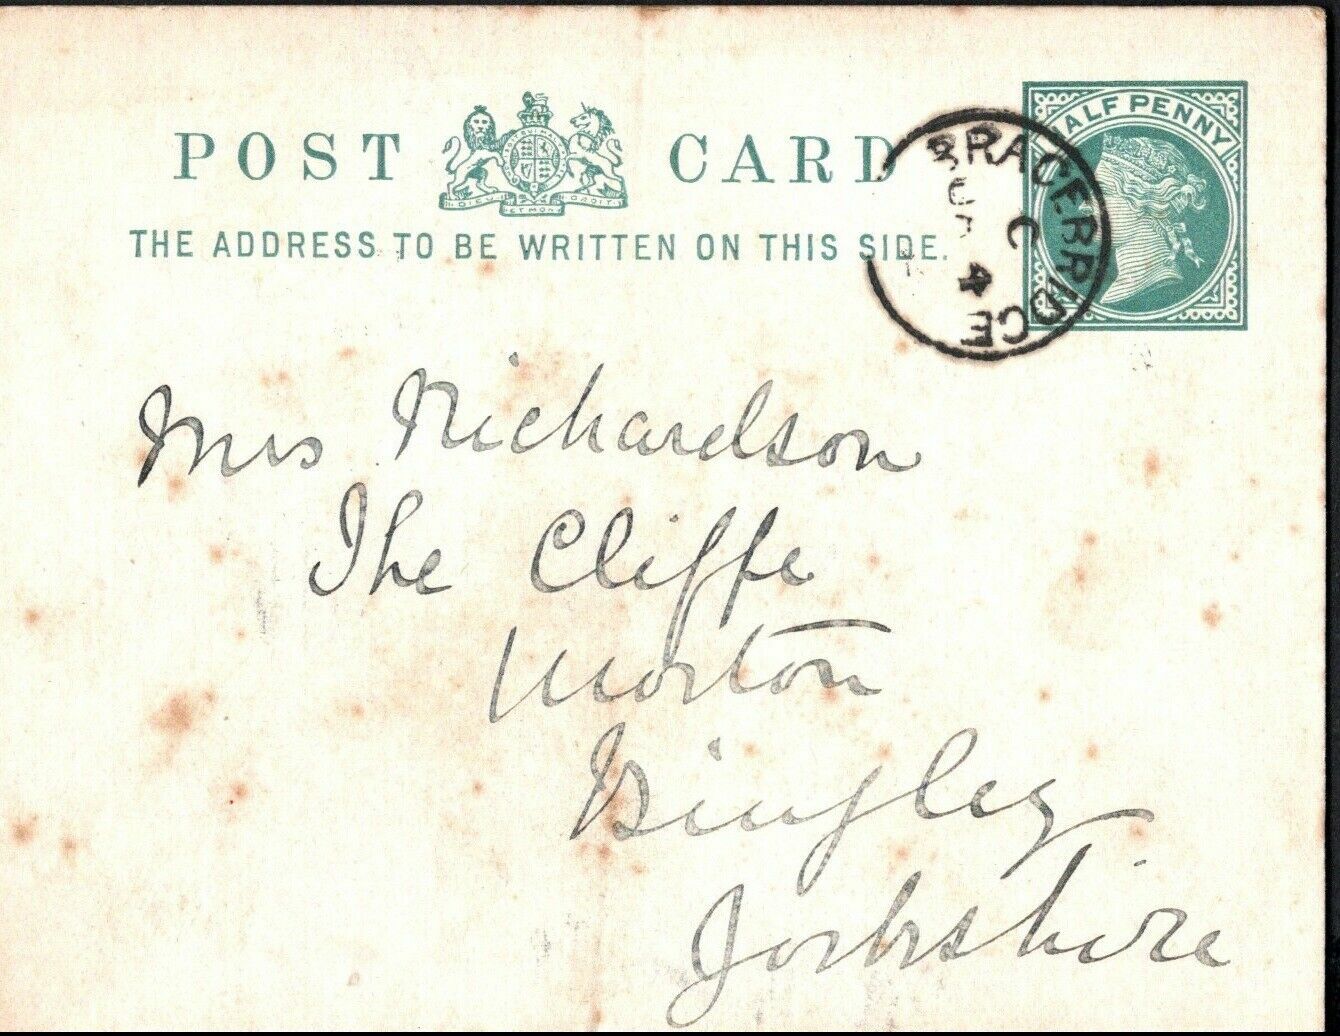 POST CARD
THE ADDRESS TO BE WRITTEN ON THIS SIDE.
HALF PENNY
BRACEBRIDGE
C
4
DIEU ET MON DROIT
Mrs Richardson
The Cliffe
Morton
Bingley
Yorkshire